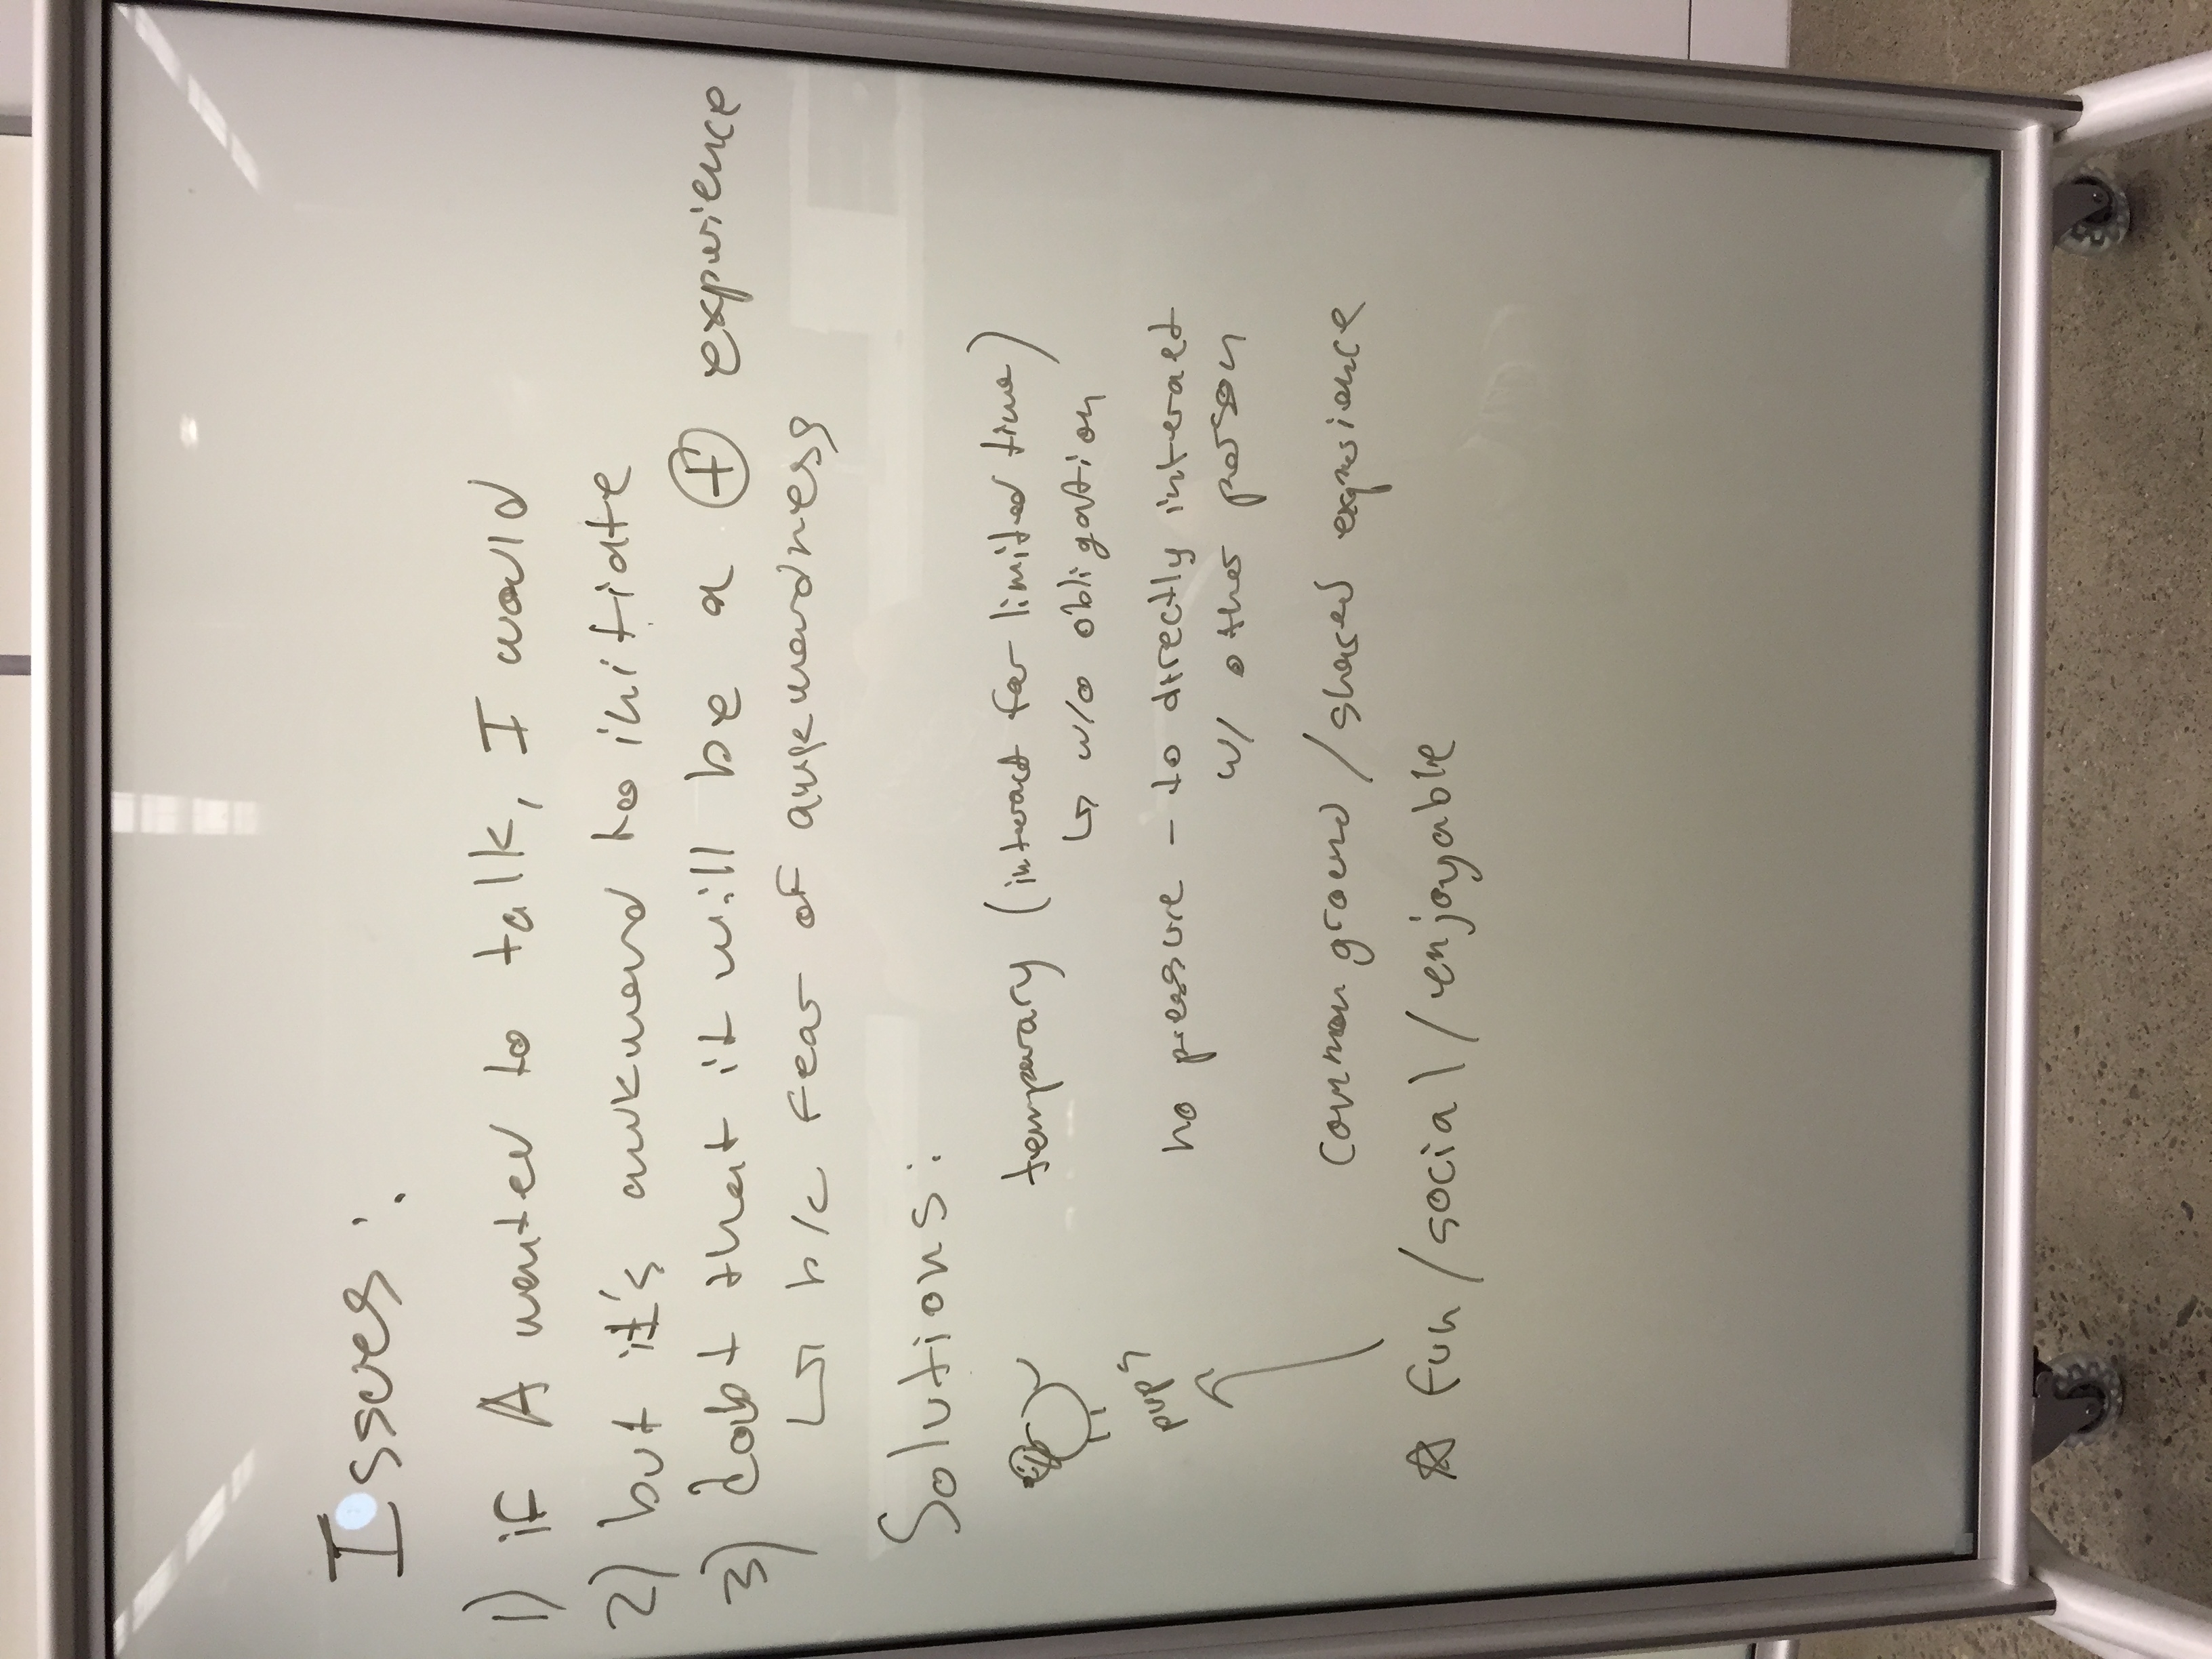 Issues:
1) if A wanted to talk, I would
2) but it's awkward to initiate
3) doubt that it will be a + experience
↳ b/c fear of awkwardness
Solutions:
temporary (interact for limited time)
↳ w/o obligation
pups
no pressure - to directly interact
w/ other person
common ground / shared experience
☆ fun / social / enjoyable